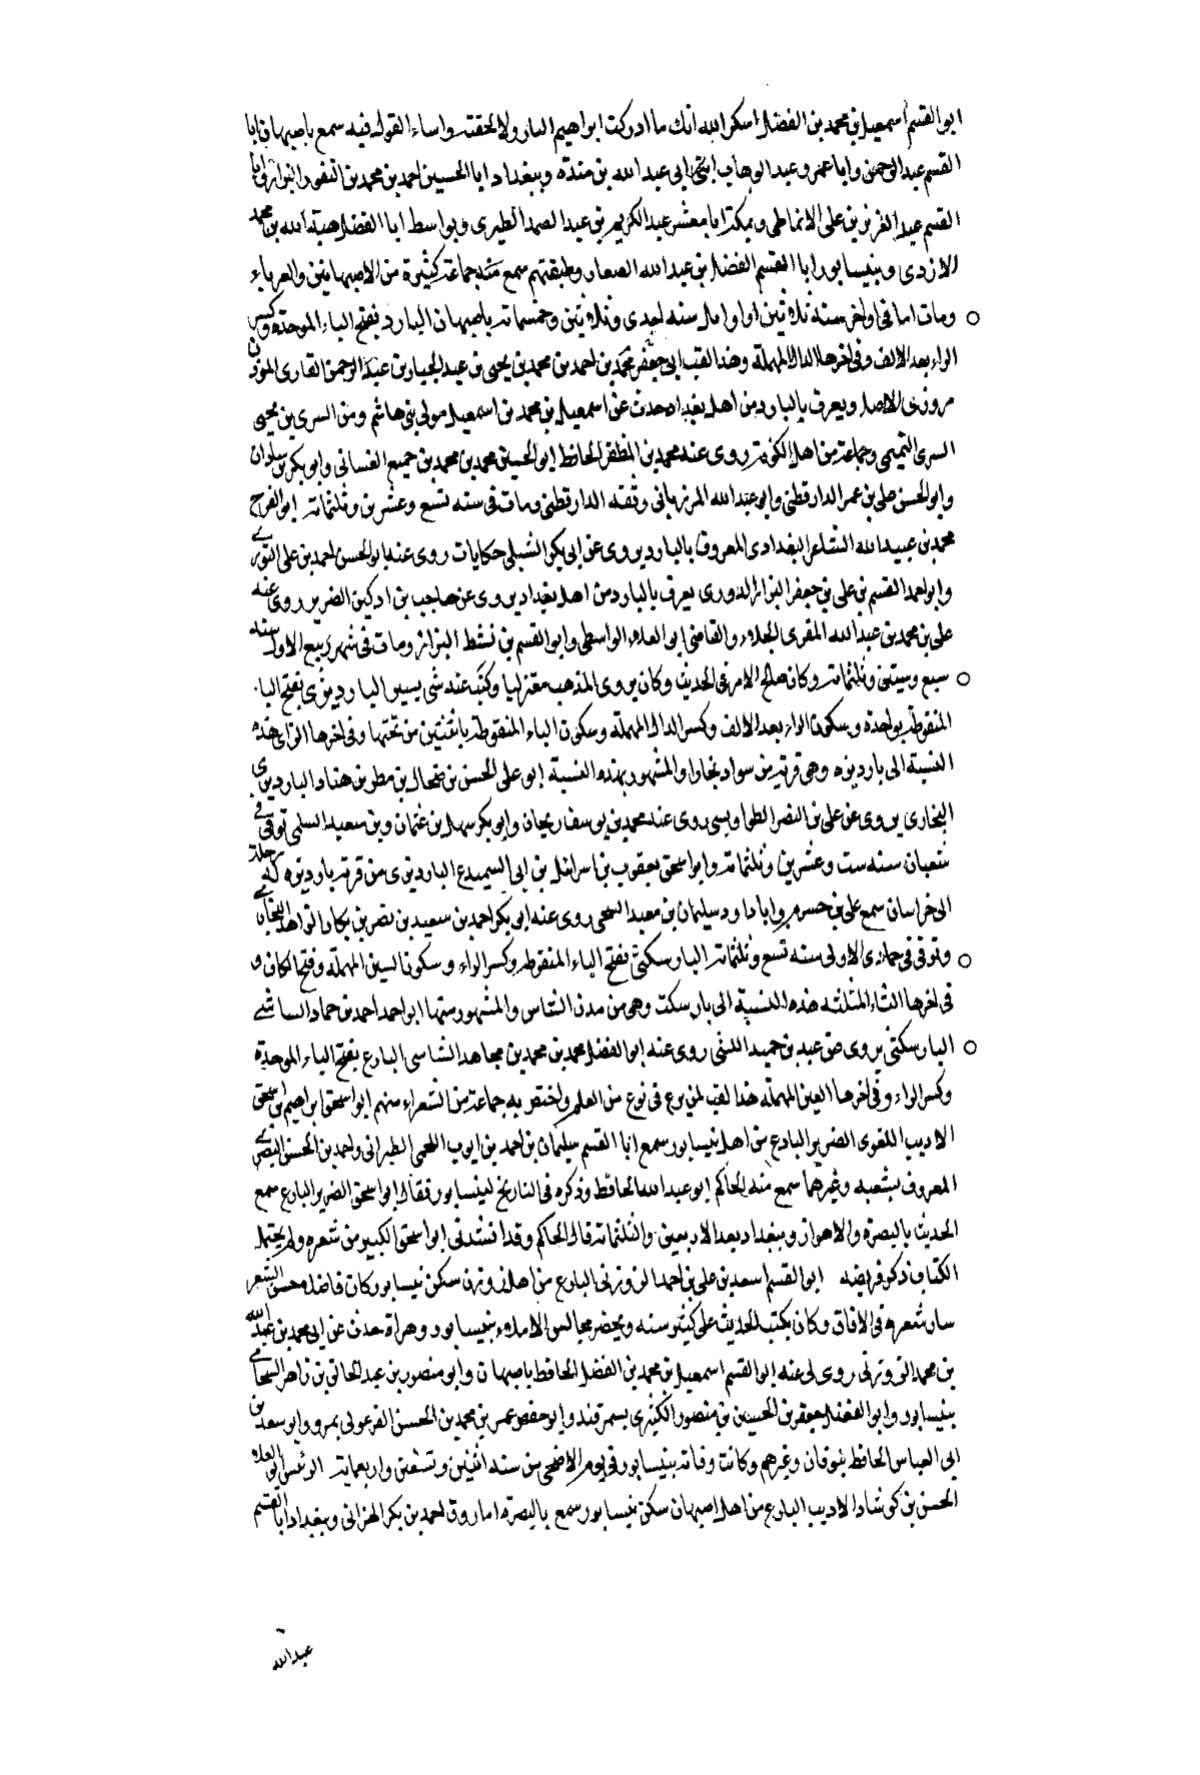 ابو القسم اسمعيل بن محمد بن الفضل اسكر الله انك ما ادركت ابراهيم البار ولا لحقته واساء القول فيه سمع باصبهان ابا
القسم عبد الرحمن وابا عمرو عبد الوهاب ابنى ابى عبد الله بن منده وببغداد ابا الحسين احمد بن محمد بن النقور البزاز وابا
القسم عبد العزيز بن على الانماطى وبمكة ابا معشر عبد الكريم بن عبد الصمد الطبرى وبواسط ابا الفضل هبة الله بن محمد
الازدى وبنيسابور ابا القسم الفضل بن عبد الله وطبقتهم سمع منه جماعة كثيرة من الاصبهانيين والغرباء
ومات اما فى اواخر سنه ثلاثين او اوايل سنه احدى وثلاثين وخمسماية باصبهان البارد بفتح الباء الموحده وكسر
الراء بعد الالف وفى اخرها الدال المهملة وهذا لقب ابى جعفر محمد بن احمد بن محمد بن يحيى بن عبد الجبار بن عبد الرحمن القارى الموذن
مروزى الاصل ويعرف بالبارد من اهل بغداد حدث عن اسمعيل بن محمد بن اسمعيل مولى بنى هاشم ومن السرى بن يحيى
السرى التميمى وجماعة من اهل الكوفة روى عنه محمد بن المظفر الحافظ ابو الحسين محمد بن محمد بن جميع الغسانى وابو بكر بن شاذان
وابو الحسن على بن عمر الدارقطنى وابو عبد الله المرزبانى وثقه الدارقطنى ومات فى سنه تسع وعشرين وثلثماية ابو الفرج
محمد بن عبيد الله الشاعر البغدادى المعروف بالبارد يروى عن ابى بكر الشبلى حكايات روى عنه ابو الحسن احمد بن على التوزى
وابو احمد القسم بن على بن جعفر البزاز الدورى يعرف بالبارد من اهل بغداد يروى عن حاجب بن اركين الضرير روى عنه
على بن محمد بن عبد الله المقرى الحذاء والقاضى ابو العلاء الواسطى وابو القسم بن البزاز ومات فى شهر ربيع الاول سنه
سبع وستين وثلثماية وكان صالح الامر فى الحديث وكان يروى المذهب معتزليا وكتب عنه شى يسير الباردیزى بفتح البا
المنقوطة بواحدة وسكون الراء بعد الالف وكسر الدال المهملة وسكون الياء المنقوطة باثنتين من تحتها وفى اخرها الزاى هذه
النسبة الى بارديزه وهى قرية من سواد بخارا والمشهور بهذه النسبة ابو على الحسن بن ضحاك بن مطر بن هناد البارديزى
البخارى يروى عن على بن النضر الطواويسى روى عنه محمد بن يوسف وابو بكر سهل بن عثمان وبن سعيد السلمى توفى فى
شعبان سنه ست وعشرين وثلثماية وابو اسحق يعقوب بن اسرائل بن ابى السميدع البارديزى من قرية بارديزه له رحلة
الى خراسان سمع على بن خشرم وابا داود سليمان بن معبد السنجى روى عنه ابو بكر احمد بن سعيد بن نصر بن بكار الزاهد البخارى
وتوفى فى جمادى الاولى سنه تسع وثلثماية البارسكثى بفتح الباء المنقوطة وكسر الراء وسكون السين المهملة وفتح الكاف و
فى اخرها الثاء المثلثه هذه النسبة الى بارسكث وهى من مدن الشاش والمشهور منها ابو احمد احمد بن حماد الشاشى
البارسكثى يروى عن عبد بن حميد الكسى روى عنه ابو الفضل محمد بن محمد بن مجاهد الشاسى البارع بفتح الباء الموحدة
وكسر الراء وفى اخرها العين المهملة هذا لقب لمن برع فى نوع من العلم واختص به جماعة من الشعراء منهم ابو اسحق ابراهيم بن اسحق
الاديب اللغوى الضرير البارع من اهل نيسابور سمع ابا القسم سليمان بن احمد بن ايوب اللخمى الطبرانى واحمد بن الحسن البصرى
المعروف بشعبه وغيرهما سمع منه الحاكم ابو عبد الله الحافظ وذكره فى التاريخ لنيسابور فقال ابو اسحق الضرير البارع سمع
الحديث بالبصرة والاهواز وببغداد بعد الاربعين والثلثماية قال الحاكم وقد انشدنى ابو اسحق الكبير من شعره ولم يحتمل
الكتاب ذكر قريضه ابو القسم اسعد بن على بن احمد الزوزنى البارع من اهل زوزن سكن نيسابور وكان فاضلا حسن الشعر
سار شعره فى الافاق وكان يكتب الحديث على كبر سنه ويحضر مجالس الاملاء بنيسابور وهراة حدث عن ابى محمد بن عبد الله
بن محمد الزوزنى روى لى عنه ابو القسم اسمعيل بن محمد بن الفضل الحافظ باصبهان وابو منصور بن عبد الخالق بن زاهر الشحامى
بنيسابور وابو الفضل جعفر بن الحسين بن منصور الكثيرى بسمرقند وابو حفص عمر بن محمد بن الحسن الفرغولى بمرو وابو سعد بن
ابى العباس الحافظ بنوقان وغيرهم وكانت وفاته بنيسابور فى يوم الاضحى من سنه اثنين وتسعين واربعماية الرئيس ابو العلاء
الحسن بن كوشاد الاديب البارع من اهل اصبهان سكن نيسابور سمع بالبصرة ابا روق احمد بن بكر الهزانى وببغداد ابا القسم
عبد الله